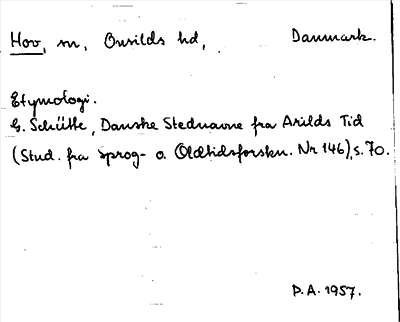 Hov, m, Onsilds hd, Danmark.
Etymologi.
G. Schütte, Danske Stednavne fra Arilds Tid
(Stud. fra Sprog- o. Oldtidsforskn. Nr 146), s. 70.
P.A. 1957.